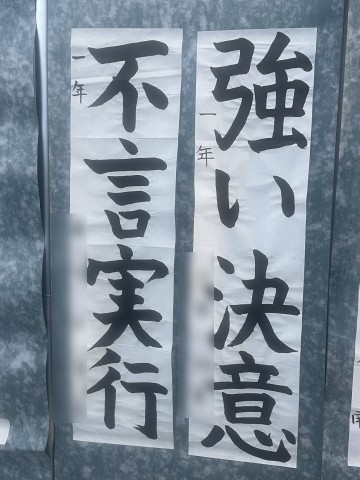 強い決意
一年
不言実行
一年